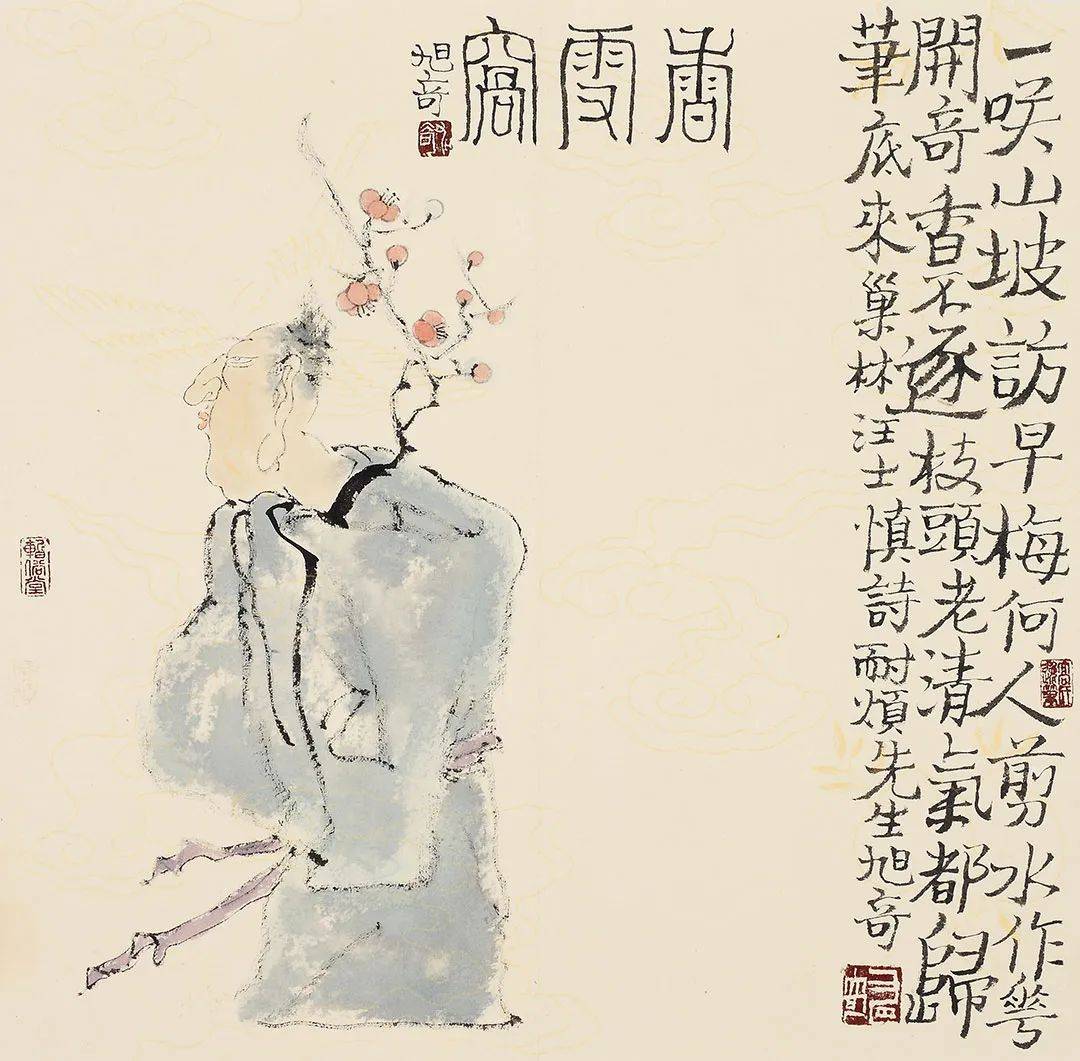 一咲山坡訪早梅何人剪水作華
開奇香不逐枝頭老清氣都歸
筆底來巢林汪士慎詩耐煩先生旭奇
香雪窩
旭奇